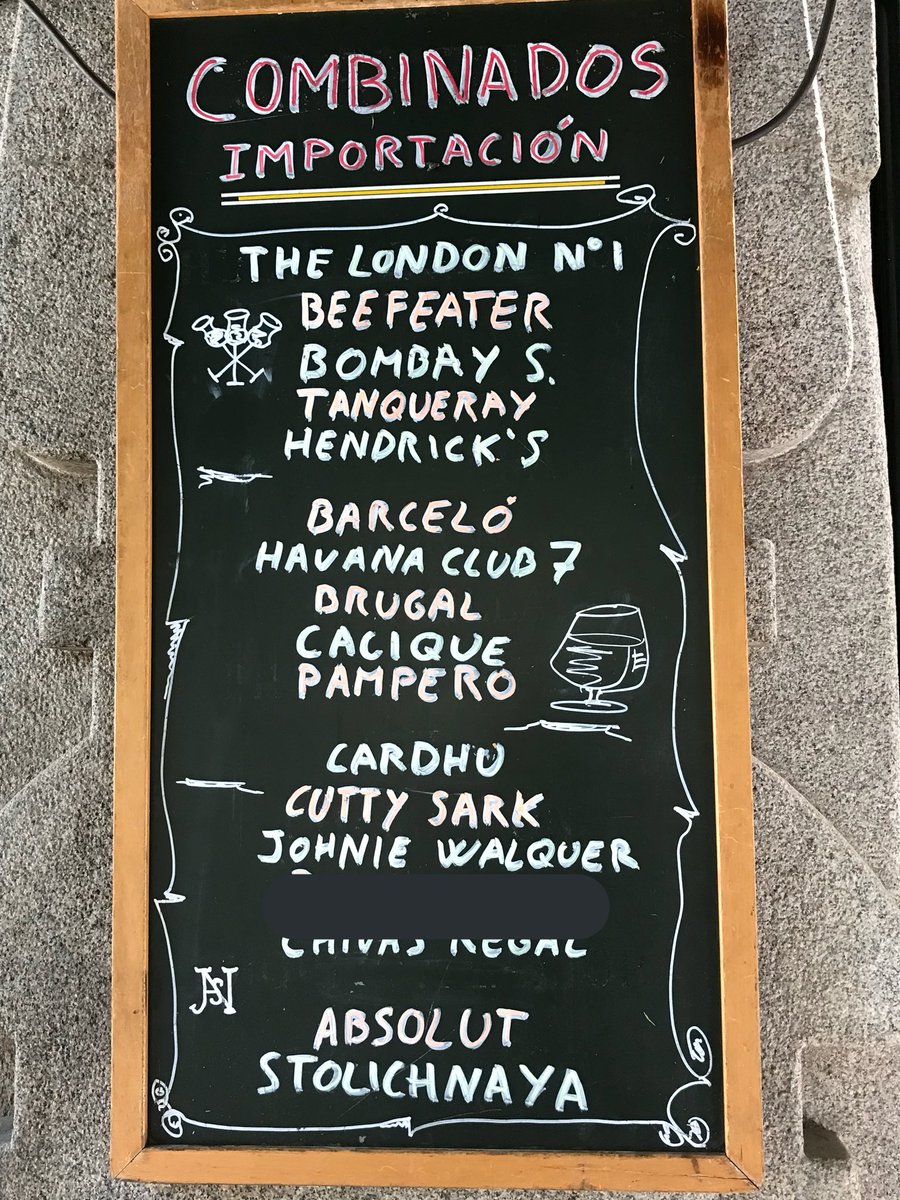 COMBINADOS
IMPORTACIÓN
THE LONDON Nº1
BEEFEATER
BOMBAY S.
TANQUERAY
HENDRICK'S
BARCELÓ
HAVANA CLUB 7
BRUGAL
CACIQUE
PAMPERO
CARDHU
CUTTY SARK
JOHNIE WALQUER
CHIVAS REGAL
ABSOLUT
STOLICHNAYA